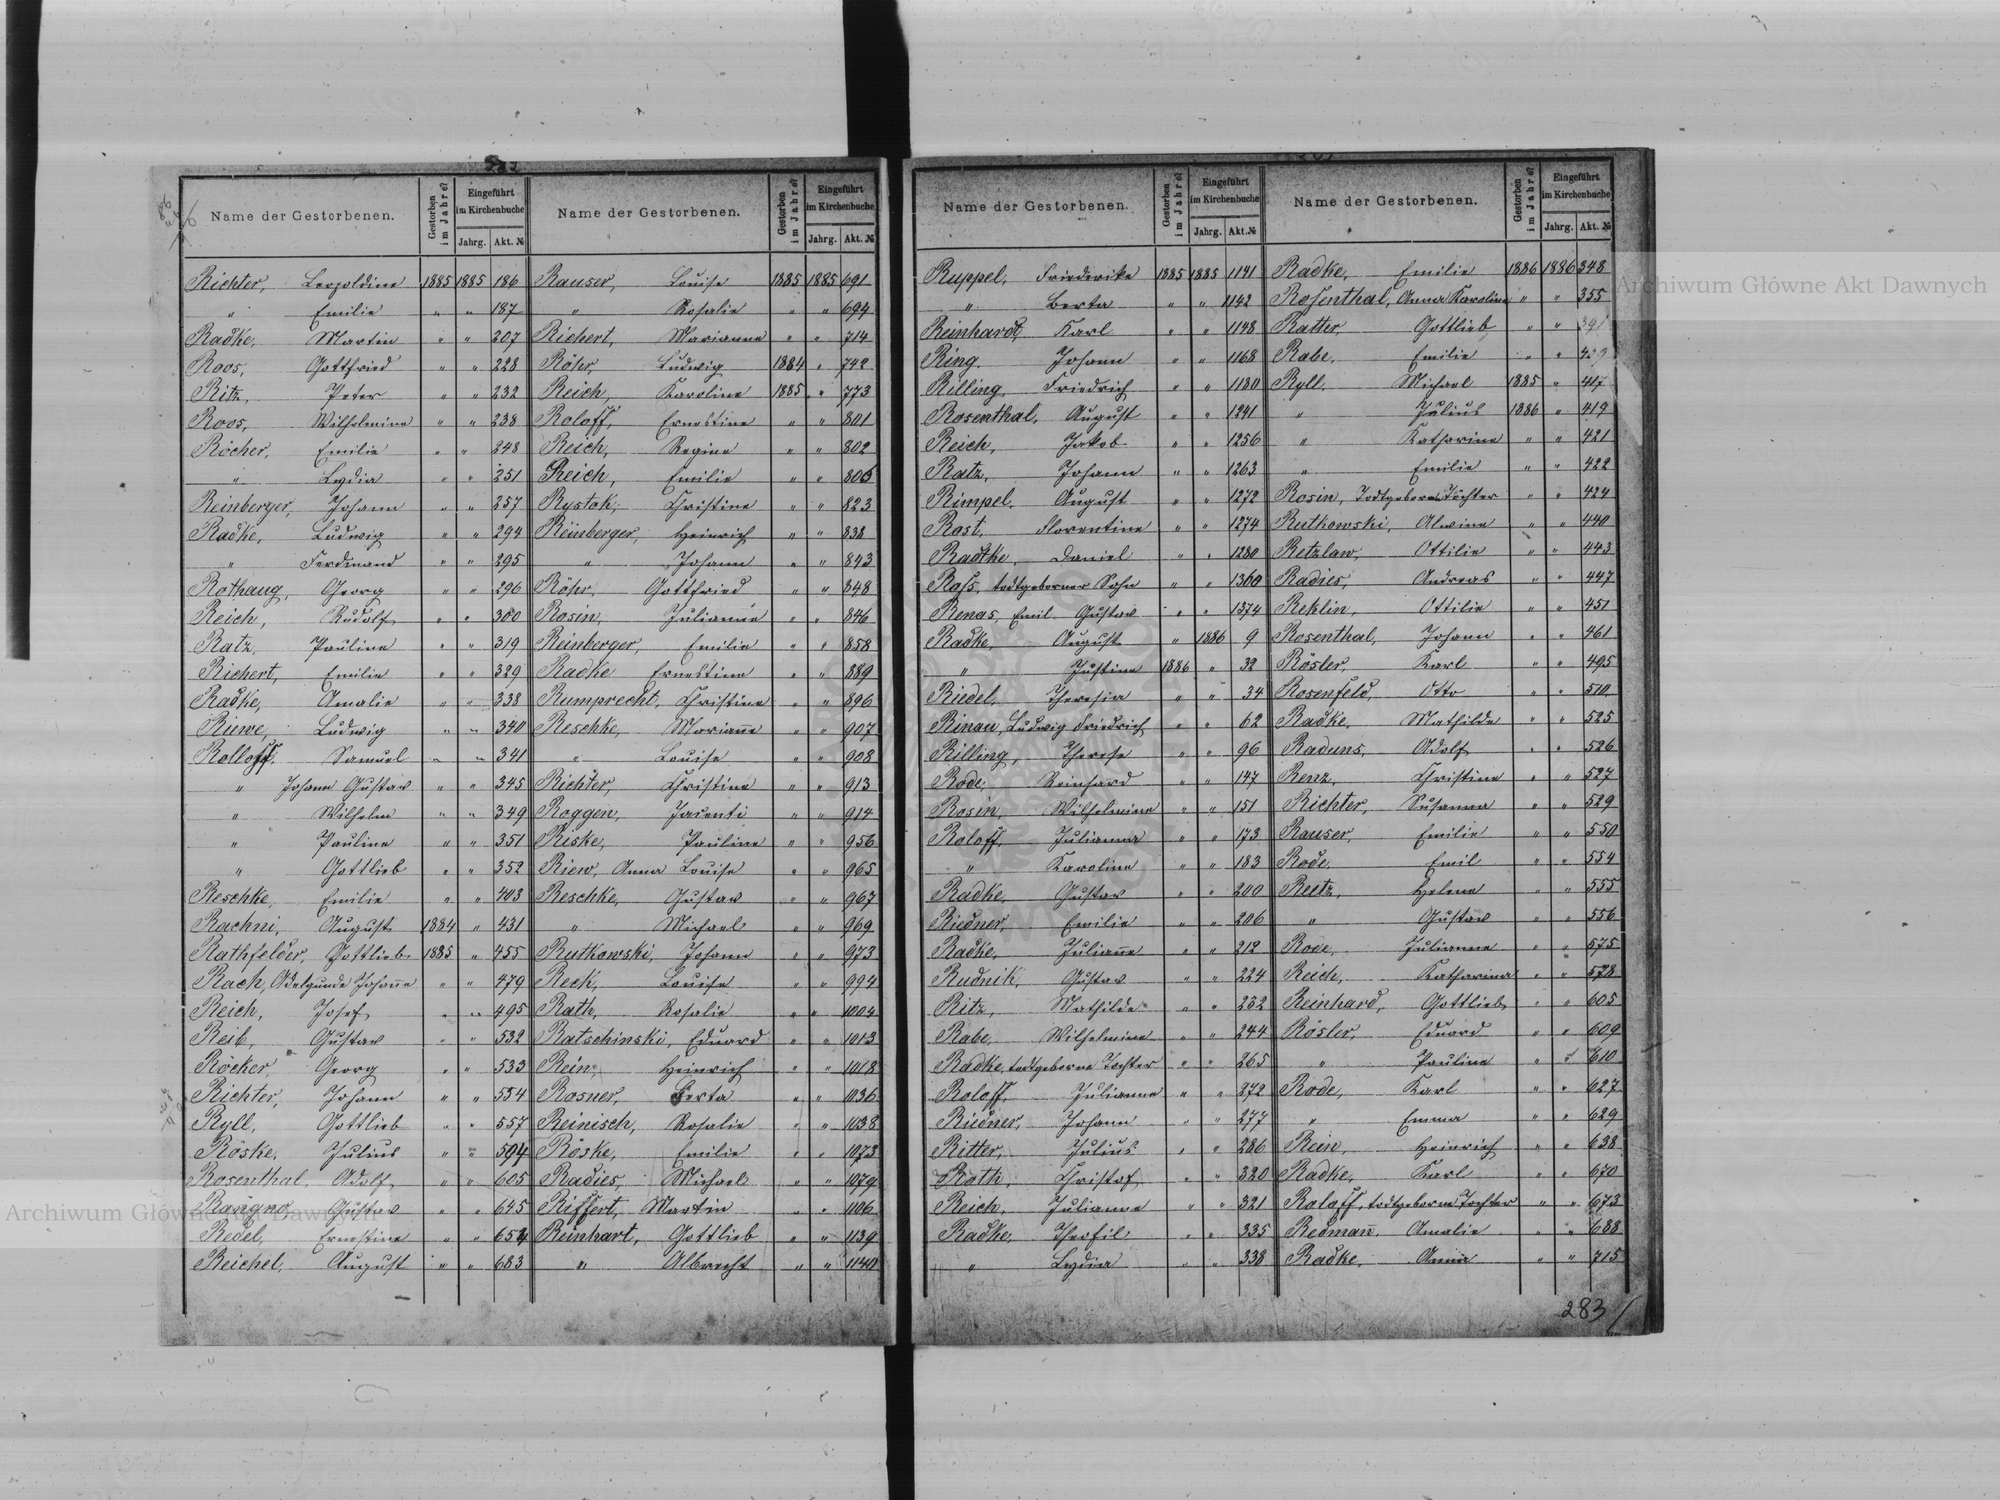 282
Name der Gestorbenen. Gestorben im Jahre? Eingeführt im Kirchenbuche Jahrg. Akt. №
Richter, Leopoldine 1885 1885 186
" Emilie " " 187
Radke, Martin " " 207
Roos, Gottfried " " 228
Ritz, Peter " " 232
Roos, Wilhelmine " " 238
Röcher, Emilie " " 248
" Lydia " " 251
Reinberger, Johann " " 257
Radke, Ludwig " " 294
" Ferdinand " " 295
Rothaug, Georg " " 296
Reich, Rudolf " " 300
Ratz, Pauline " " 319
Richert, Emilie " " 329
Radke, Amalie " " 338
Riewe, Ludwig " " 340
Rolloff, Samuel " " 341
" Johann Gustav " " 345
" Wilhelm " " 349
" Pauline " " 351
" Gottlieb " " 352
Reschke, Emilie " " 403
Rachni, August 1884 " 431
Rathfelder, Gottlieb 1885 " 455
Rach, Adelgunde Johanne " " 479
Reich, Josef " " 495
Reib, Gustav " " 532
Röcker, Georg " " 533
Richter, Johann " " 554
Ryll, Gottlieb " " 557
Röske, Julius " " 594
Rosenthal, Adolf " " 605
Gustav " " 645
Redel, Ernestine " " 654
Reichel, August " " 683
Name der Gestorbenen. Gestorben im Jahre? Eingeführt im Kirchenbuche Jahrg. Akt. №
Rauser, Louise 1885 1885 691
" Rosalie " " 694
Richert, Marianne " " 714
Röhr, Ludwig 1884 " 742
Reich, Karoline 1885 " 773
Roloff, Ernestine " " 801
Reich, Regine " " 802
Reich, Emilie " " 806
Rystok, Christine " " 823
Reinberger, Heinrich " " 838
" Johann " " 843
Röhr, Gottfried " " 848
Rosin, Julianne " " 846
Reinberger, Emilie " " 858
Radke Ernestine " " 889
Rumprecht, Christine " " 896
Reschke, Marianne " " 907
" Louise " " 908
Richter, Christine " " 913
Roggen, " " 914
Riske, Pauline " " 956
Riew, Anna Louise " " 965
Reschke, Gustav " " 967
" Michael " " 969
Rutkowski, Johann " " 973
Reck, Louise " " 994
Rath, Rosalie " " 1004
Ratschinski, Eduard " " 1013
Rein, Heinrich " " 1018
Rosner, Berta " " 1036
Reinisch, Rosalie " " 1038
Röske, Emilie " " 1073
Radies, Michael " " 1079
Riffert, Martin " " 1106
Reinhart, Gottlieb " " 1139
" Albrecht " " 1140
Name der Gestorbenen. Gestorben im Jahre? Eingeführt im Kirchenbuche Jahrg. Akt. №
Ruppel, Friederike 1885 1885 1141
" Berta " " 1142
Reinhardt, Karl " " 1148
Ring, Johann " " 1168
Rilling, Friedrich " " 1180
Rosenthal, August " " 1241
Reich, Jakob " " 1256
Ratz, Johann " " 1263
Rimpel, August " " 1272
Rost, Florentine " " 1274
Radtke, Daniel " " 1280
Ross, todtgeborner Sohn " " 1360
Renas, Emil Gustav " " 1374
Radke, August " 1886 9
" Justine 1886 " 32
Riedel, Theresia " " 34
Rinau, Ludwig Friedrich " " 62
Rilling, Therese " " 96
Rode, Reinhard " " 147
Rosin, Wilhelmine " " 151
Roloff, Julianna " " 173
" Karoline " " 183
Radke, Gustav " " 200
Riedner, Emilie " " 206
Radke, Julianne " " 212
Rudnik, Gustav " " 224
Ritz, Mathilde " " 232
Rabe, Wilhelmine " " 244
Radke, todtgeborne Tochter " " 265
Roloff, Julianne " " 272
Riedner, Johann " " 277
Ritter, Julius " " 286
Roth, Christof " " 320
Reich, Julianne " " 321
Radke, Theofil " " 335
" Lydia " " 338
Name der Gestorbenen. Gestorben im Jahre? Eingeführt im Kirchenbuche Jahrg. Akt. №
Radke, Emilie 1886 1886 348
Rosenthal, Anna Karoline " " 355
Ratter Gottlieb " " 391
Rabe, Emilie " "
Ryll, Michael 1885 " 417
" Julius 1886 " 419
" Katharine " " 421
" Emilie " " 422
Rosin, Todtgeborene Töchter " " 424
Rutkowski, Alwine " " 440
Retzlaw, Ottilie " " 443
Radies, Andreas " " 447
Reklin, Ottilie " " 451
Rosenthal, Johann " " 461
Rösler, Karl " " 495
Rosenfeld, Otto " " 510
Radke, Mathilde " " 525
Raduns, Adolf " " 526
Renz, Christine " " 527
Richter, Susanna " " 529
Rauser, Emilie " " 550
Rode, Emil " " 554
Reetz, Helene " " 555
" Gustav " " 556
Rode, Julianne " " 575
Reich, Katharina " " 578
Reinhard, Gottlieb " " 605
Rösler, Eduard " " 609
" Pauline " " 610
Rode, Karl " " 627
" Emma " " 629
Rein, Heinrich " " 638
Radke, Karl " " 670
Roloff, todtgeborne Tochter " " 673
Redmann, Amalie " " 688
Radke, Anna " " 715
283
Archiwum Główne Akt Dawnych
Archiwum Główne Akt Dawnych